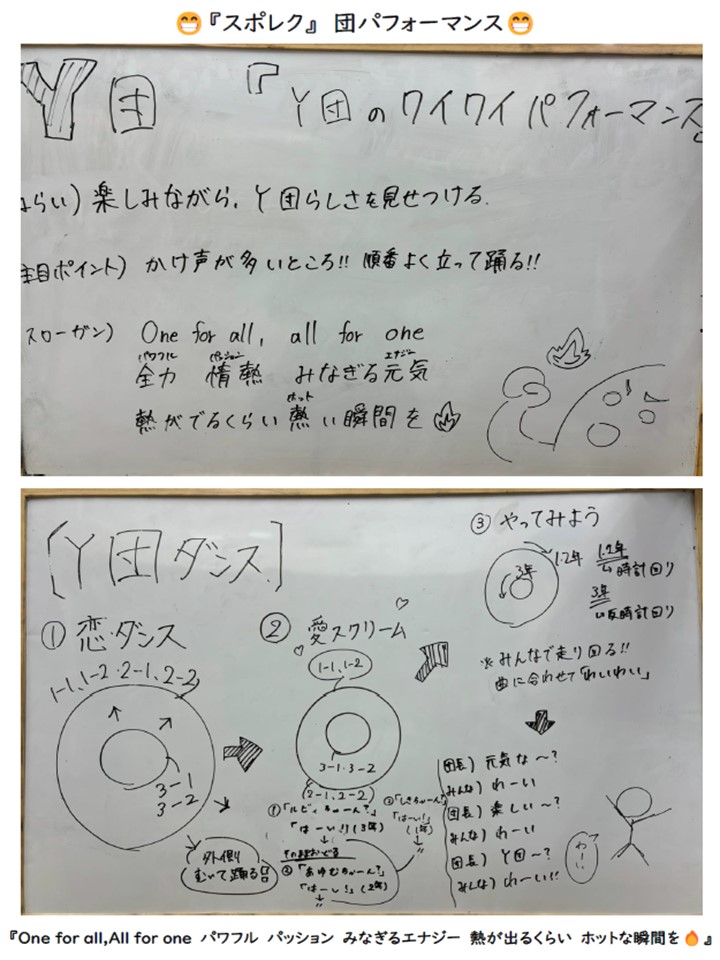 😁『スポレク』 団パフォーマンス😁
Y団 『Y団のワイワイパフォーマンス』
ねらい) 楽しみながら、Y団らしさを見せつける.
注目ポイント) かけ声が多いところ!! 順番よく立って踊る!!
スローガン) One for all, all for one
パワフル パッション エナジー
全力 情熱 みなぎる元気
ホット
熱がでるくらい熱い瞬間を
[Y団ダンス]
① 恋ダンス
1-1,1-2・2-1,2-2
3-1
3-2
外側
むいて踊る!!
② 愛スクリーム
1-1,1-2
3-1・3-2
(2-1,2-2)
①「ルビィちゃーん?」
「はーい!!」(3年)
↓
②「あゆむちゃーん?」
「はーい!」(2年)
③「しきちゃーん?」
「はーい!」
(1年)
③ やってみよう
3年
1.2年
1.2年
↳時計回り
3年
↳反時計回り
※みんなで走り回る!!
曲に合わせて「わいわい」
団長) 元気な〜?
みんな) わーい
団長) 楽しい〜?
みんな) わーい
団長) Y団〜?
みんな) わーい!!
わーい
『One for all,All for one パワフル パッション みなぎるエナジー 熱が出るくらい ホットな瞬間を🔥』